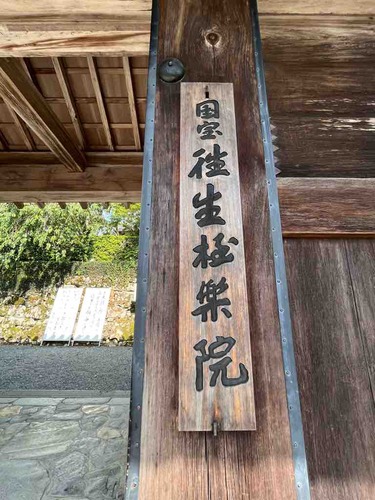 国宝
往生極楽院